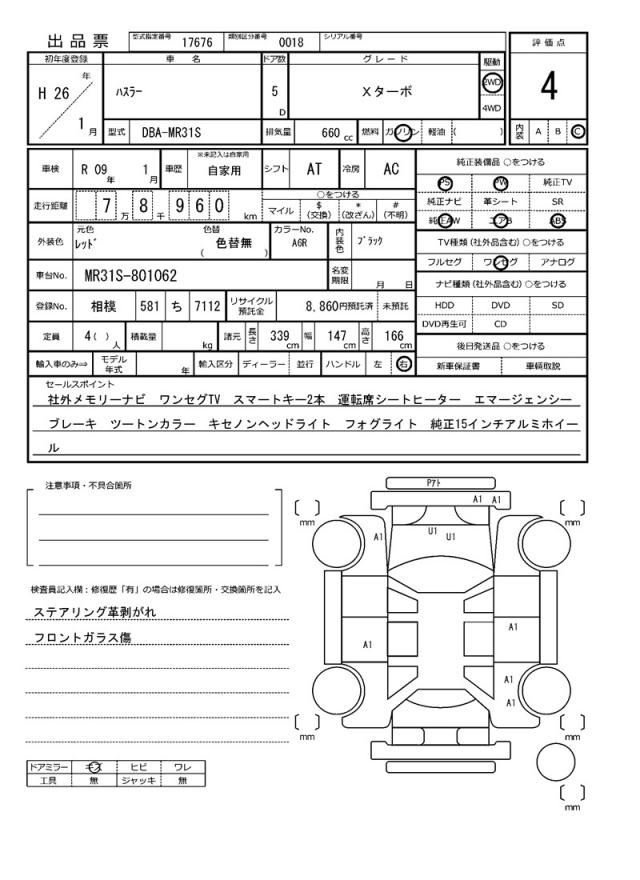 出品票 型式指定番号 17676 類別区分番号 0018 シリアル番号
評価点
4
内装 A B C
初年度登録 車名 ドア数 グレード 駆動
H 26 年 1 月 ハスラー 5 D Xターボ 2WD 4WD
型式 DBA-MR31S 排気量 660 cc 燃料 ガソリン 軽油 ( )
車検 R 09 年 1 月 車歴 ※未記入は自家用 自家用 シフト AT 冷房 AC
走行距離 7 万 8 千 9 6 0 km
○をつける
マイル $(交換) *(改ざん) #(不明)
外装色 元色 レッド 色替 色替無 ( ) カラーNo. A6R 内装色 ブラック
車台No. MR31S-801062 名変期限 月 日
登録No. 相模 581 ち 7112 リサイクル預託金 8,860円預託済 未預託
定員 4( ) 人 積載量 kg 諸元 長さ 339 cm 幅 147 cm 高さ 166 cm
輸入車のみ⇒ モデル年式 年 輸入区分 ディーラー 並行 ハンドル 左 右
純正装備品 ○をつける
PS PW 純正TV
純正ナビ 革シート SR
純正AW エアB ABS
TV種類(社外品含む) ○をつける
フルセグ ワンセグ アナログ
ナビ種類(社外品含む) ○をつける
HDD DVD SD
DVD再生可 CD
後日発送品 ○をつける
新車保証書 車輌取説
セールスポイント
社外メモリーナビ ワンセグTV スマートキー2本 運転席シートヒーター エマージェンシー
ブレーキ ツートンカラー キセノンヘッドライト フォグライト 純正15インチアルミホイー
ル
注意事項・不具合箇所
検査員記入欄:修復歴「有」の場合は修復箇所・交換箇所を記入
ステアリング革剥がれ
フロントガラス傷
ドアミラー キズ ヒビ ワレ
工具 無 ジャッキ 無
Pアト
A1 A1
mm
mm
A1
U1 U1
A1
A1
A1
A1
mm
mm
mm